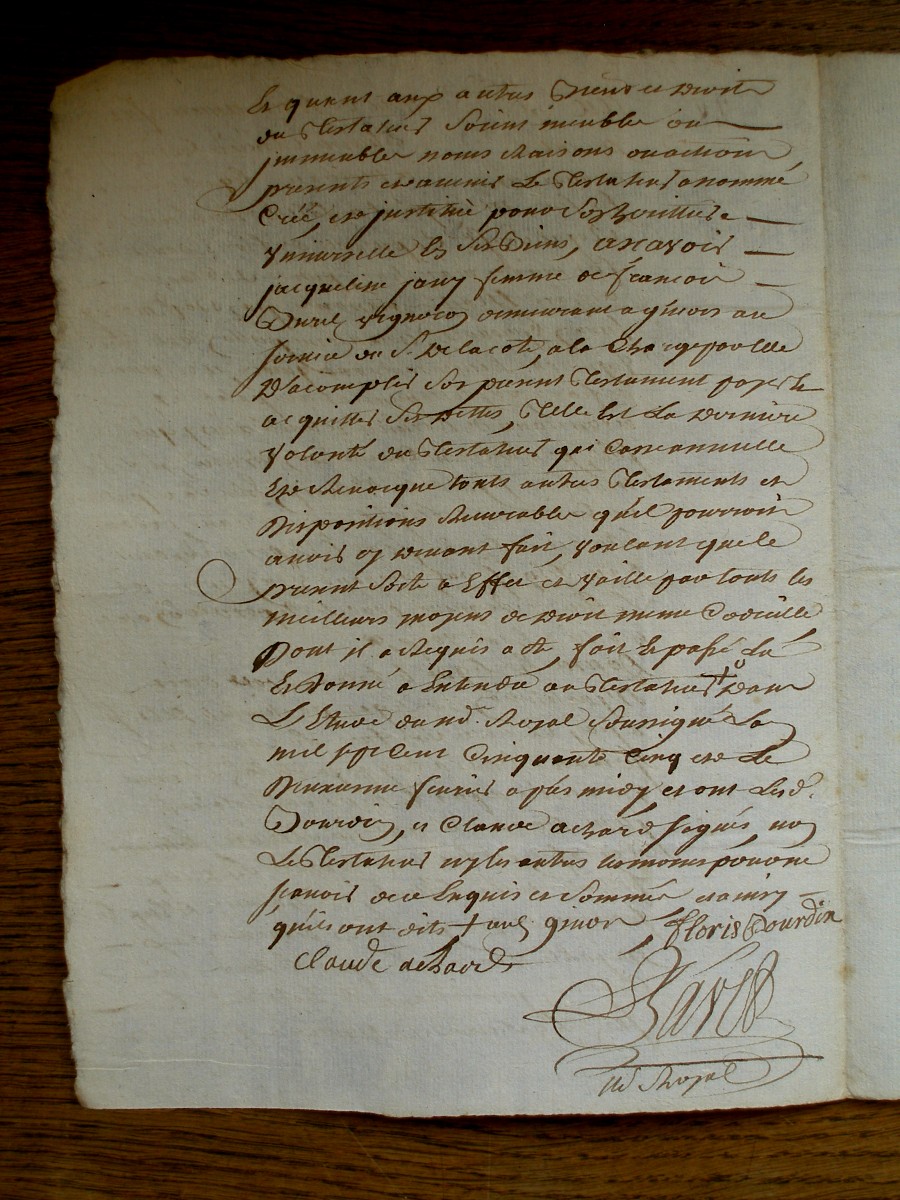 Et quant aux autres Biens et Droits
du Testateur Soient meubles ou
jmmeubles noms Raisons ou actions
presents et avenir Le Testateur a nommé
Créé, et jnstitué pour Son heritiere
Vniverselle Ses Biens, ascavoir
jacqueline jany femme de françois
vigneron demeurant a au
service du Sr. Delacote, a la Charge par elle
D'acomplir Son present Testament payer et
acquitter Ses Dettes, Telle Est La Derniere
Volonté du Testateur qui Casse annulle
Et Revocque touts autres Testaments et
Dispositions quil pourroit
avoir cy Devant fait, Voulant que le
present Sorte a Effet et Vaille par touts les
meilleurs moyens de Droit meme Codicille
Dont jl a Requis acte fait et passé Lû
Et Donné a Entendre au Testateur Dans
L'Etude du nre. Royal Soussigné La
mil sept Cent Cinquante Cinq et Le
Deuxieme fevrier apres midy et ont Lesd.
Dourdin, et Claude achard signés, non
Le Testateur ny les autres temoins pour ne
scavoir de ce Enquis et Sommés, et ainsy
qu'ils ont dits
floris Dourdin
Claude achard
Ravel
nre Royal